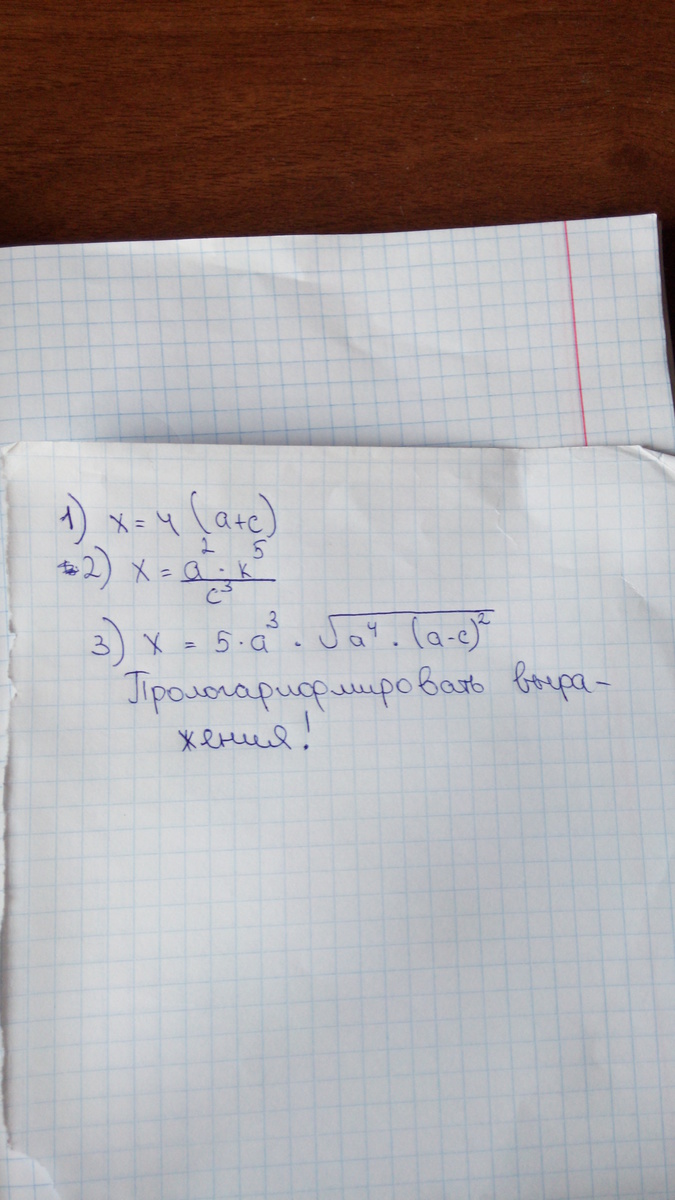 1) x = 4 (a+c)
2) x = a² · k⁵ / c³
3) x = 5·a³ · √(a⁴ · (a-c)²)
Прологарифмировать выра-
жения!